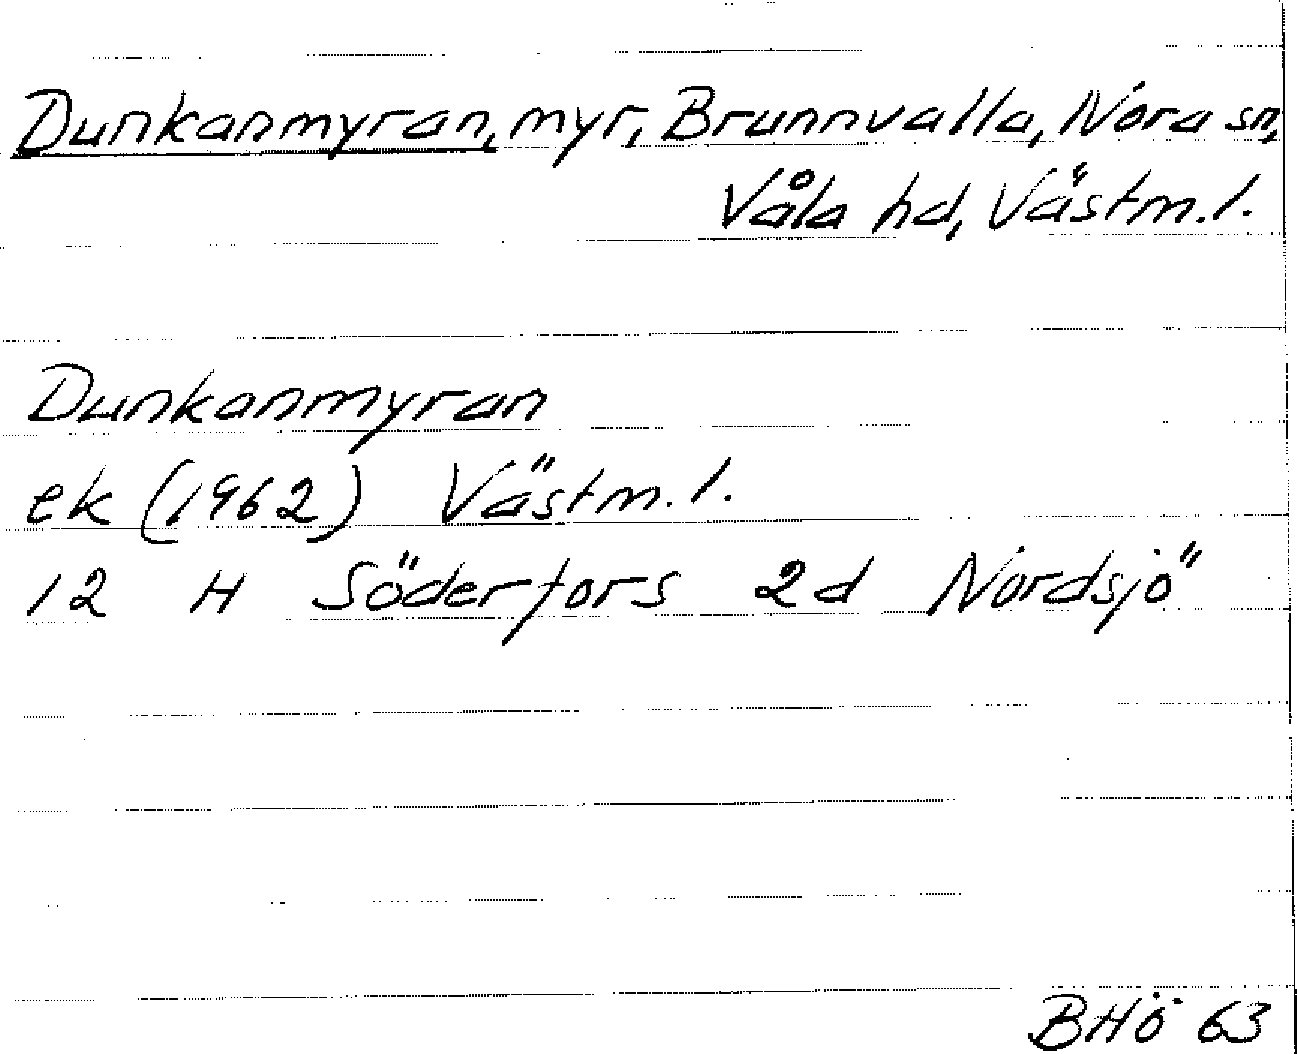 Dunkanmyran, myr, Brunnvalla, Nora sn,
Våla hd, Västm. l.
Dunkanmyran
ek (1962) Västm. l.
12 H Söderfors 2d Nordsjö"
BHÖ 63